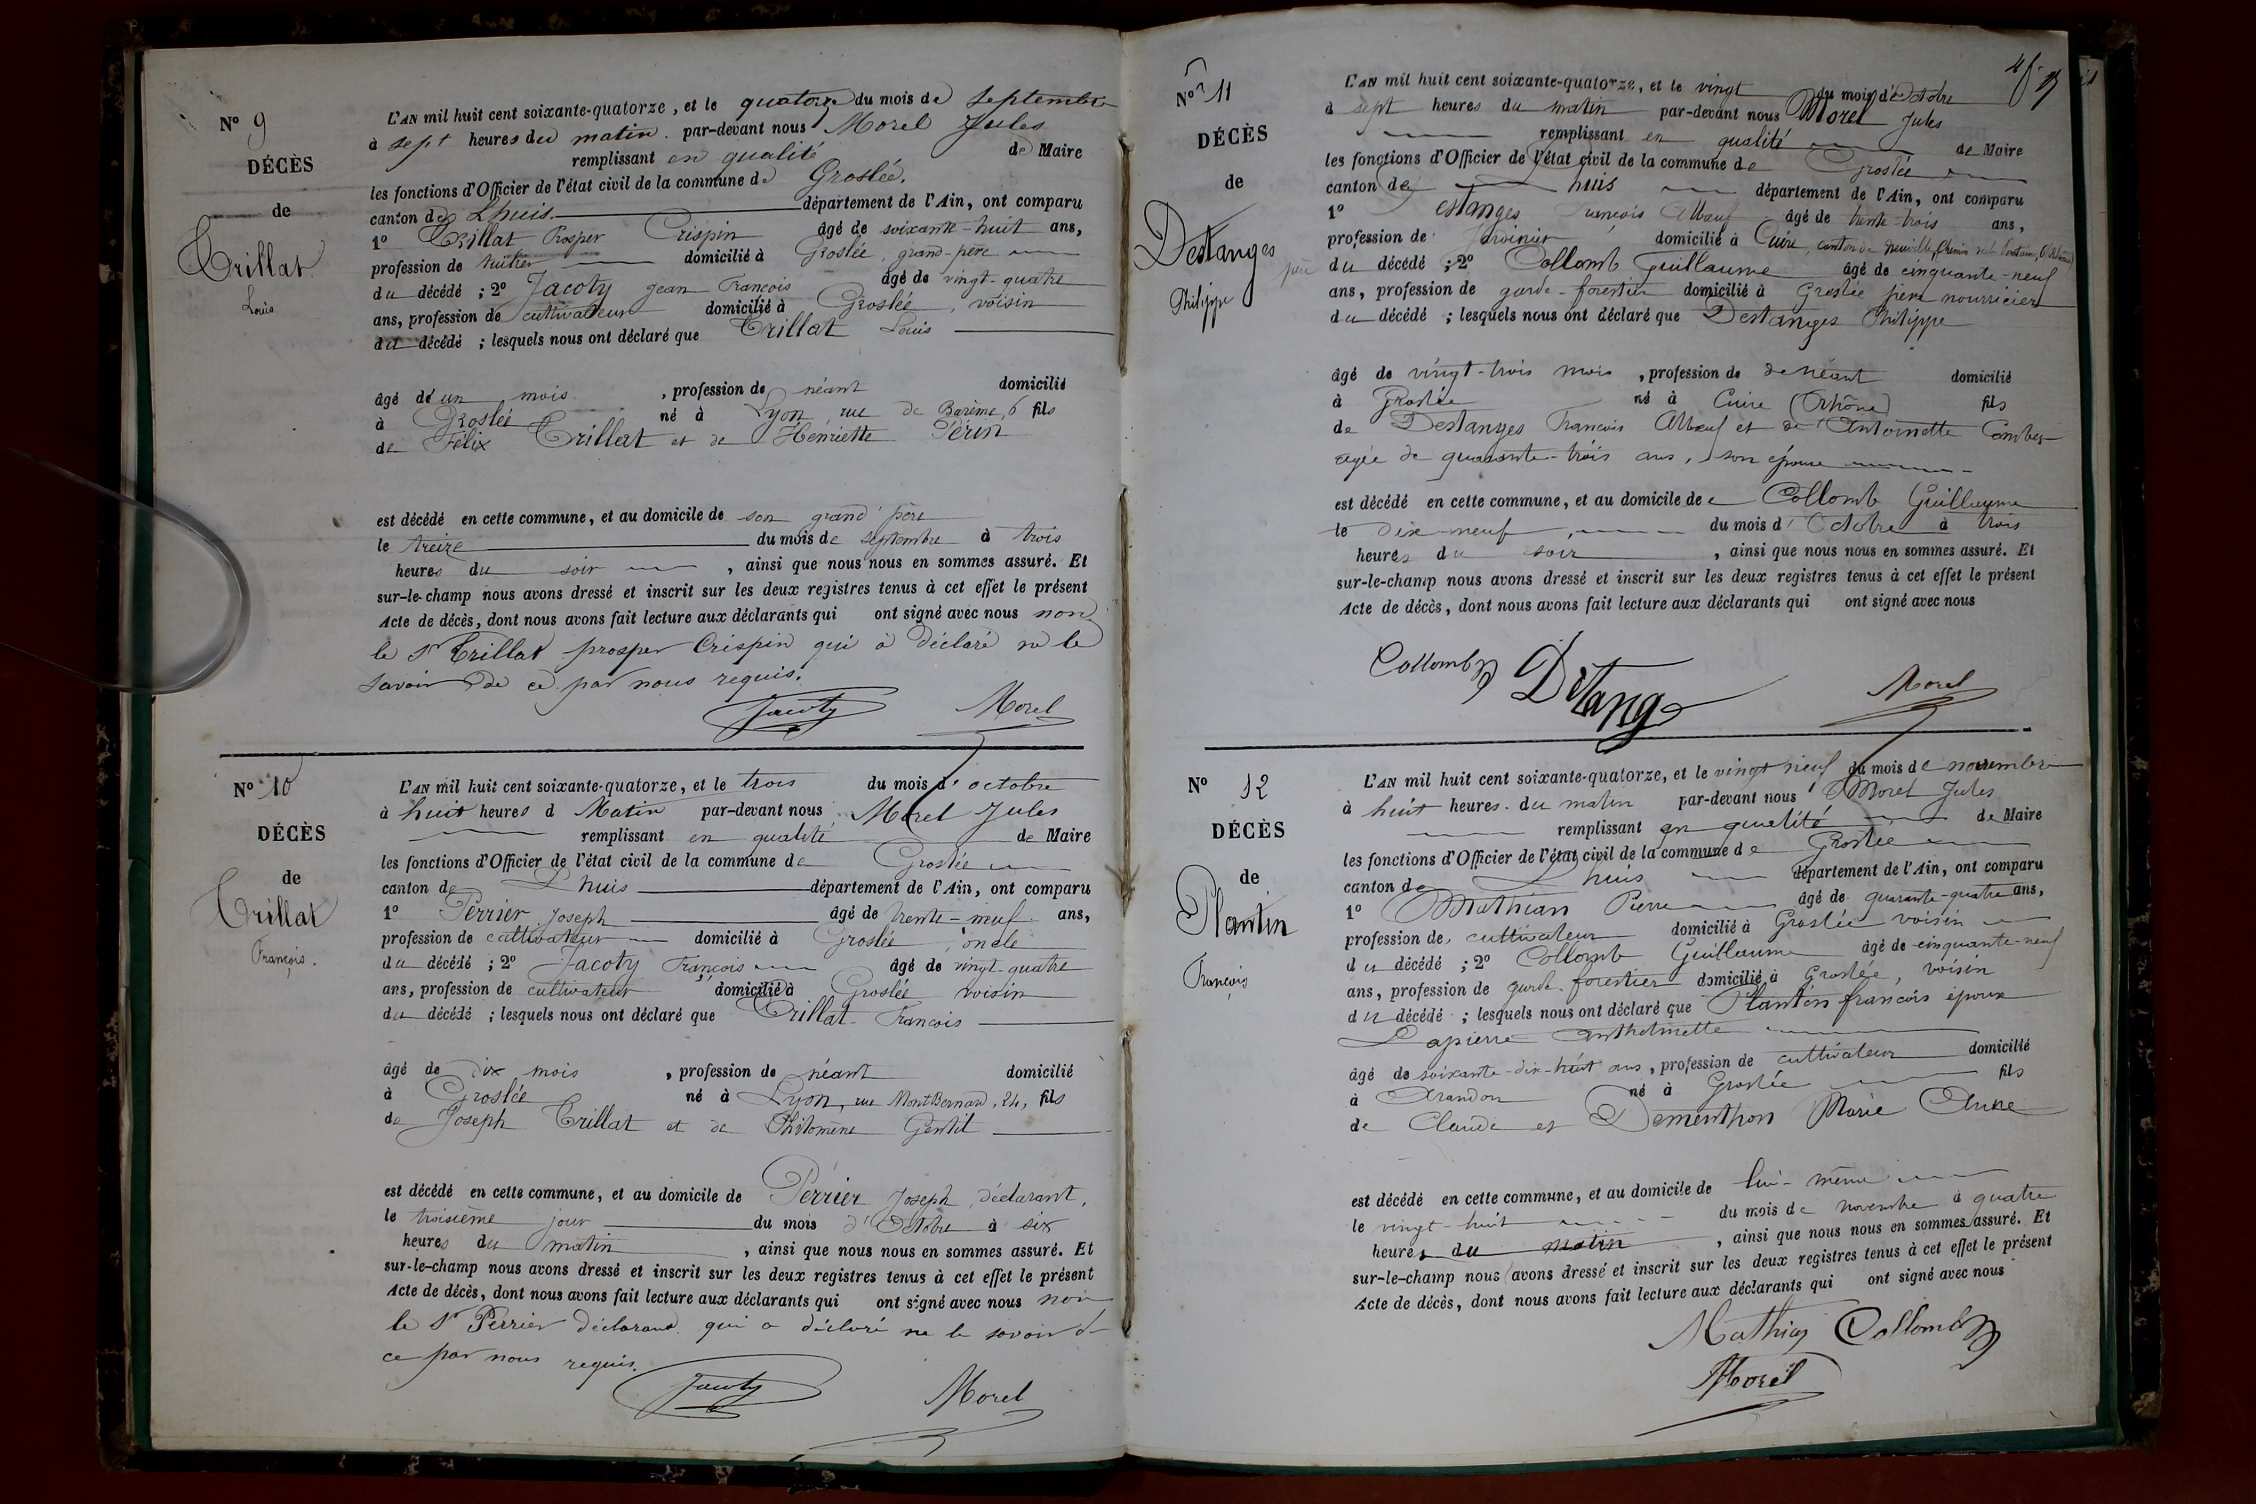 N° 9
DÉCÈS
de
Trillat
Louis
L'AN mil huit cent soixante-quatorze, et le quatorze du mois de septembre
à sept heures du matin. par-devant nous Morel Jules
remplissant en qualité de Maire
les fonctions d'Officier de l'état civil de la commune de Groslée.
canton de Lhuis département de l'Ain, ont comparu
1° Trillat Prosper Crispin âgé de soixante-huit ans,
profession de domicilié à Groslée, grand-père
du décédé ; 2° Jacoty Jean François âgé de vingt-quatre
ans, profession de cultivateur domicilié à Groslée, voisin
du décédé ; lesquels nous ont déclaré que Trillat Louis
âgé d'un mois, profession de néant domicilié
à Groslée né à Lyon, rue de Barème, 6 fils
de Félix Trillat et de Henriette Périn
est décédé en cette commune, et au domicile de son grand père
le treize du mois de septembre à trois
heures du soir, ainsi que nous nous en sommes assuré. Et
sur-le-champ nous avons dressé et inscrit sur les deux registres tenus à cet effet le présent
Acte de décès, dont nous avons fait lecture aux déclarants qui ont signé avec nous non
le Sr Trillat prosper Crispin qui a déclaré ne le
savoir de ce par nous requis.
Jacoty Morel
N° 10
DÉCÈS
de
Trillat
François.
L'AN mil huit cent soixante-quatorze, et le trois du mois d'octobre
à huit heures d Matin par-devant nous Morel Jules
remplissant en qualité de Maire
les fonctions d'Officier de l'état civil de la commune de Groslée
canton de Lhuis département de l'Ain, ont comparu
1° Perrier Joseph âgé de trente-neuf ans,
profession de cultivateur domicilié à Groslée, oncle
du décédé ; 2° Jacoty François âgé de vingt-quatre
ans, profession de cultivateur domicilié à Groslée voisin
du décédé ; lesquels nous ont déclaré que Trillat François
âgé de dix mois, profession de néant domicilié
à Groslée né à Lyon, rue MontBernard, 24, fils
de Joseph Trillat et de Philomène Gentil
est décédé en cette commune, et au domicile de Perrier Joseph, déclarant,
le troisième jour du mois d'Octobre à six
heures du matin, ainsi que nous nous en sommes assuré. Et
sur-le-champ nous avons dressé et inscrit sur les deux registres tenus à cet effet le présent
Acte de décès, dont nous avons fait lecture aux déclarants qui ont signé avec nous non
le Sr Perrier déclarant qui a déclaré ne le savoir d
ce par nous requis.
Jacoty Morel
N° 11
DÉCÈS
de
Destanges
Philippe
L'AN mil huit cent soixante-quatorze, et le vingt du mois d'Octobre
à sept heures du matin par-devant nous Morel Jules
remplissant en qualité de Maire
les fonctions d'Officier de l'état civil de la commune de Groslée
canton de Lhuis département de l'Ain, ont comparu
1° Destanges François âgé de trente-trois ans,
profession de Jardinier domicilié à Cuire, canton de Neuville,
père du décédé ; 2° Collomb Guillaume âgé de cinquante-neuf
ans, profession de garde-forestier domicilié à Groslée père nourricier
du décédé ; lesquels nous ont déclaré que Destanges Philippe
âgé de vingt-trois mois, profession de de néant domicilié
à Groslée né à Cuire (Rhône) fils
de Destanges François et de Antoinette Combes
agée de quarante-trois ans, son épouse
est décédé en cette commune, et au domicile de Collomb Guillaume
le dix-neuf du mois d'Octobre à trois
heures du soir, ainsi que nous nous en sommes assuré. Et
sur-le-champ nous avons dressé et inscrit sur les deux registres tenus à cet effet le présent
Acte de décès, dont nous avons fait lecture aux déclarants qui ont signé avec nous
Collomb Détange Morel
N° 12
DÉCÈS
de
Plantin
François
L'AN mil huit cent soixante-quatorze, et le vingt neuf du mois de novembre
à huit heures du matin par-devant nous Morel Jules
remplissant en qualité de Maire
les fonctions d'Officier de l'état civil de la commune de Groslée
canton de Lhuis département de l'Ain, ont comparu
1° Mathian Pierre âgé de quarante-quatre ans,
profession de cultivateur domicilié à Groslée voisin
du décédé ; 2° Collomb Guillaume âgé de cinquante-neuf
ans, profession de garde-forestier domicilié à Groslée, voisin
du décédé ; lesquels nous ont déclaré que Plantin françois époux
Lapierre Anthelmette
âgé de soixante-dix-huit ans, profession de cultivateur domicilié
à Arandon né à Groslée fils
de Claude et Dementhon Marie Anne
est décédé en cette commune, et au domicile de lui-même
le vingt-huit du mois de novembre à quatre
heures du matin, ainsi que nous nous en sommes assuré. Et
sur-le-champ nous avons dressé et inscrit sur les deux registres tenus à cet effet le présent
Acte de décès, dont nous avons fait lecture aux déclarants qui ont signé avec nous
Mathian Collomb
Morel